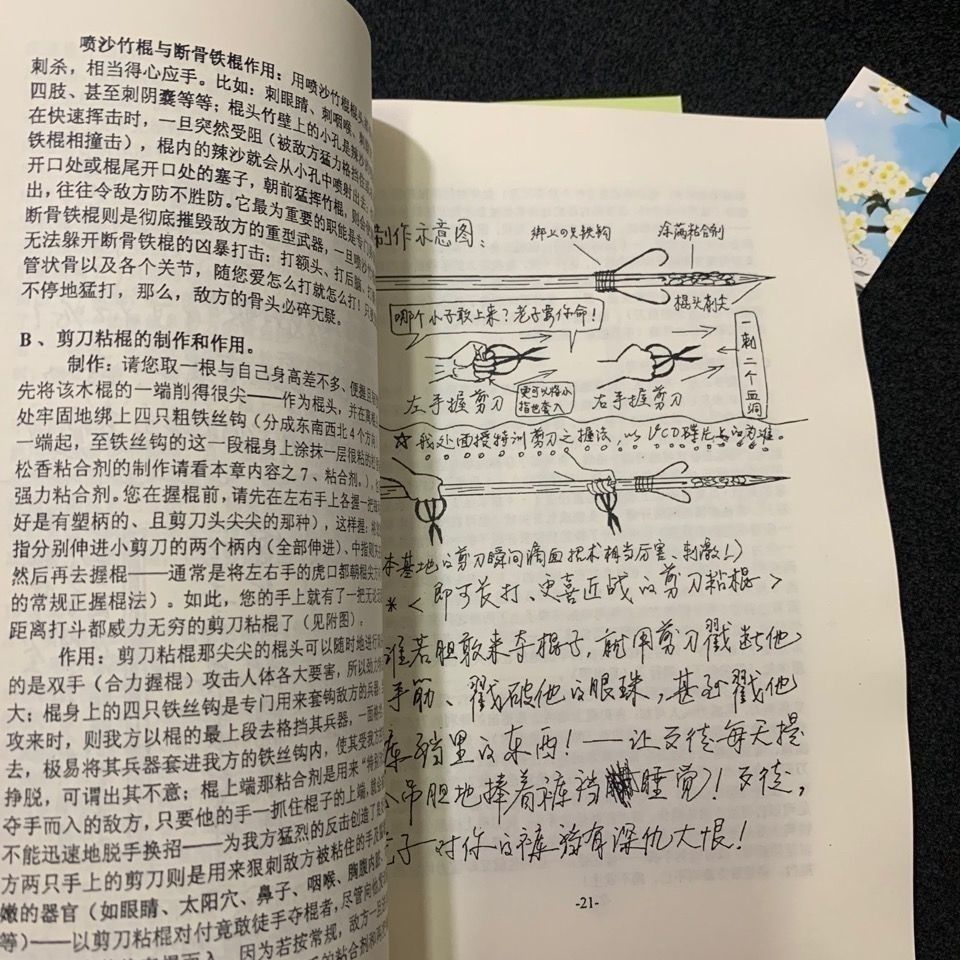 喷沙竹棍与断骨铁棍作用：用喷沙竹棍棍头
刺杀，相当得心应手。比如：刺眼睛、刺咽喉、刺
四肢、甚至刺阴囊等等；棍头竹壁上的小孔是辣沙
在快速挥击时，一旦突然受阻（被敌方猛力格挡住或
铁棍相撞击），棍内的辣沙就会从小孔中喷射出去
开口处或棍尾开口处的塞子，朝前猛挥竹棍，则会
出，往往令敌方防不胜防。它最为重要的职能是专门
断骨铁棍则是彻底摧毁敌方的重型武器，一旦喷沙竹
无法躲开断骨铁棍的凶暴打击：打额头、打后脑、打
管状骨以及各个关节，随您爱怎么打就怎么打！只要
不停地猛打，那么，敌方的骨头必碎无疑。
B、剪刀粘棍的制作和作用。
制作：请您取一根与自己身高差不多、便握且
先将该木棍的一端削得很尖——作为棍头，并在离棍
处牢固地绑上四只粗铁丝钩（分成东南西北4个方
一端起，至铁丝钩的这一段棍身上涂抹一层很粘的松
松香粘合剂的制作请看本章内容之7、粘合剂。），
强力粘合剂。您在握棍前，请先在左右手上各握一把
好是有塑柄的、且剪刀头尖尖的那种），这样握：将
指分别伸进小剪刀的两个柄内（全部伸进）、中指则
然后再去握棍——通常是将左右手的虎口都朝棍尖方
的常规正握棍法）。如此，您的手上就有了一把无论
距离打斗都威力无穷的剪刀粘棍了（见附图）。
作用：剪刀粘棍那尖尖的棍头可以随时地进行
的是双手（合力握棍）攻击人体各大要害，所以劲力
大；棍身上的四只铁丝钩是专门用来套钩敌方的兵器
攻来时，则我方以棍的最上段去格挡其兵器，一面格
去，极易将其兵器套进我方的铁丝钩内，使其受我方
挣脱，可谓出其不意；棍上端那粘合剂是用来“
夺手而入的敌方，只要他的手一抓住棍子的上端，就会
不能迅速地脱手换招——为我方猛烈的反击创造了
方两只手上的剪刀则是用来狠刺敌方被粘住的手及
嫩的器官（如眼睛、太阳穴、鼻子、咽喉、胸腹内脏、
等)——以剪刀粘棍对付竟敢徒手夺棍者，尽管向他
因为若按常规，敌方一旦
的粘合剂和两
制作示意图：
绑上四只铁钩
涂满粘合剂
棍头削尖
哪个小子敢上来？老子要你命！
一刺二个血洞
更可以将小指也套入
左手握剪刀
右手握剪刀
☆我处面授特训剪刀之握法，以VCD碟片上的为准。
本基地的剪刀瞬间滴血招术相当厉害、刺激！）
*＜即可长打、更喜近战的剪刀粘棍＞
谁若胆敢来夺棍子，就用剪刀戳断他
手筋、戳破他的眼珠，甚至戳他
裤裆里的东西！——让歹徒每天提
心吊胆地捧着裤裆睡觉！歹徒，
老子一对你的裤裆有深仇大恨！
-21-